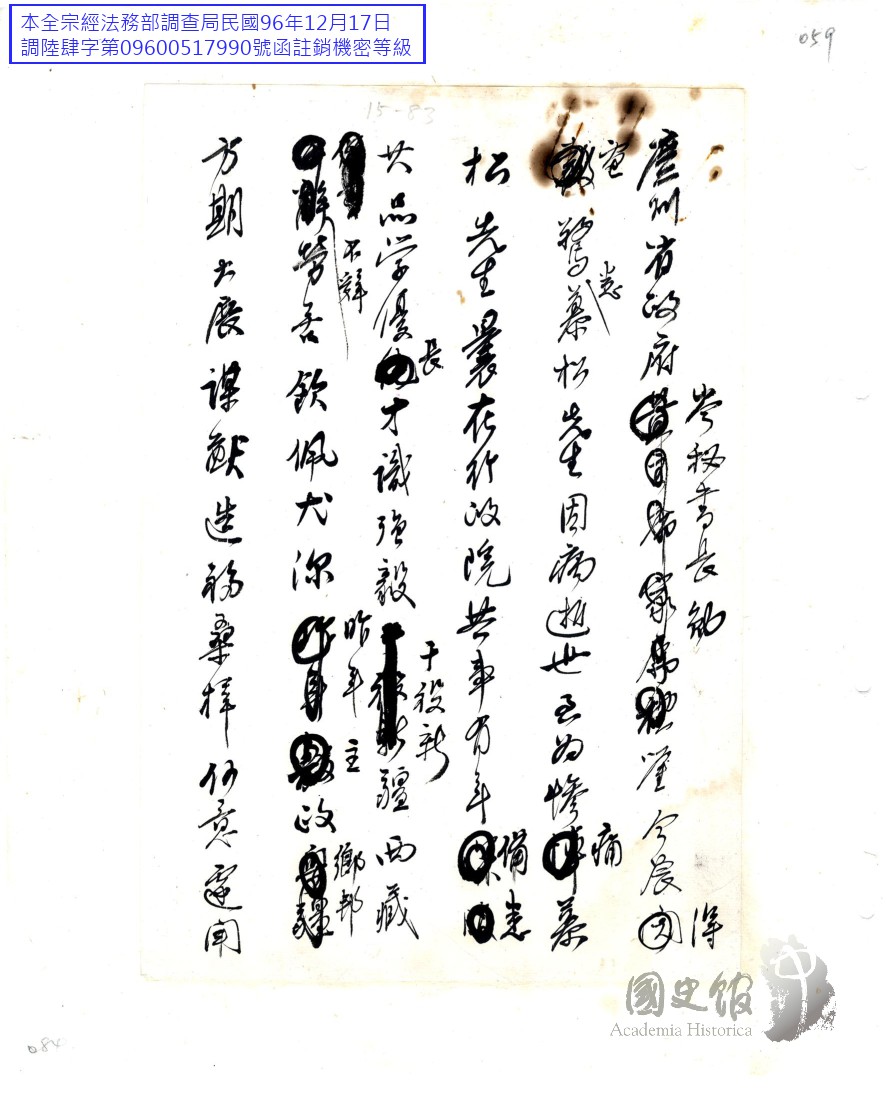 本全宗經法務部調查局民國96年12月17日
調陸肆字第09600517990號函註銷機密等級
059
15-83
岑秘書長
省政府 鑒今晨 得
電驚悉慕松先生因病逝世至為慘痛慕
松先生曩在行政院共事有年備悉
其品学優長才識強毅于役新疆西藏
不辭勞苦欽佩尤深昨年主政鄉邦
方期大展謀猷造福桑梓何意遽聞
084
國史館
Academia Historica